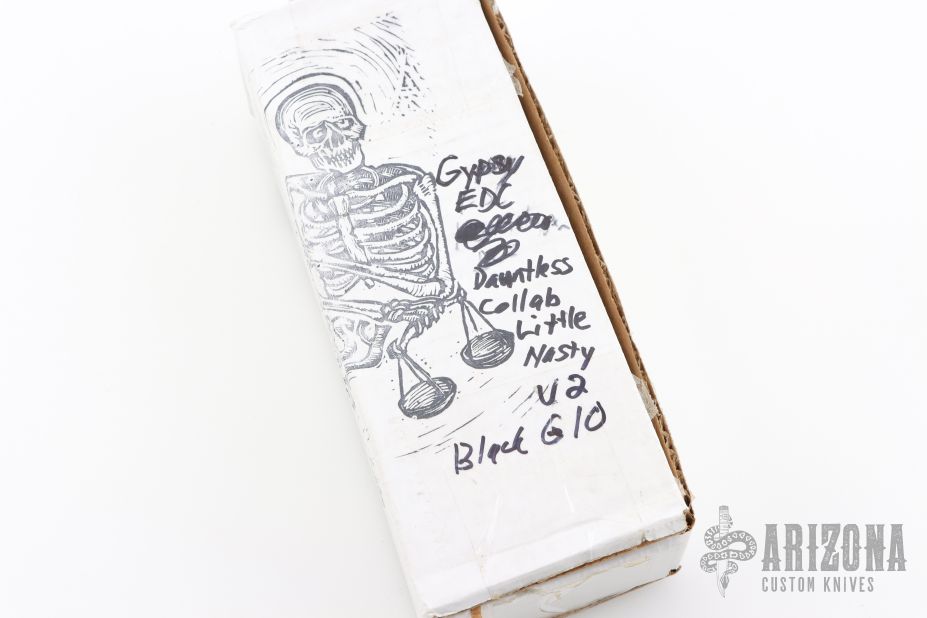 Gypsy
EDC
Dauntless
Collab
Little
Nasty
V2
Black G10
ARIZONA
CUSTOM KNIVES